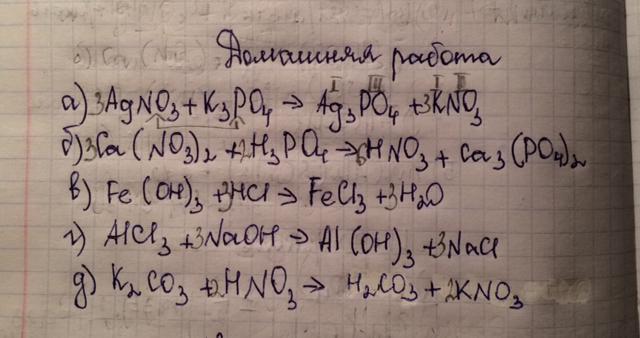 Домашняя работа
I III I II
а) 3AgNO3 + K3PO4 → Ag3PO4 + 3KNO3
б) 3Ca(NO3)2 + 2H3PO4 → 6HNO3 + Ca3(PO4)2
в) Fe(OH)3 + 3HCl → FeCl3 + 3H2O
г) AlCl3 + 3NaOH → Al(OH)3 + 3NaCl
д) K2CO3 + 2HNO3 → H2CO3 + 2KNO3